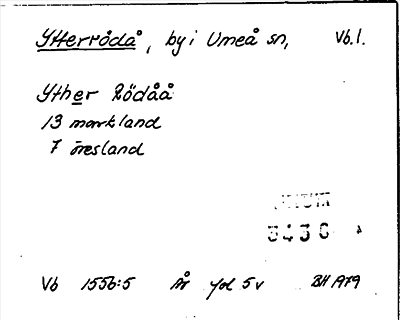 Ytterrödå, by i Umeå sn, Vb.1.
Yther Rödåå
13 markland
7 öresland
3436
Vb 1556:5 År fol 5v BH A79